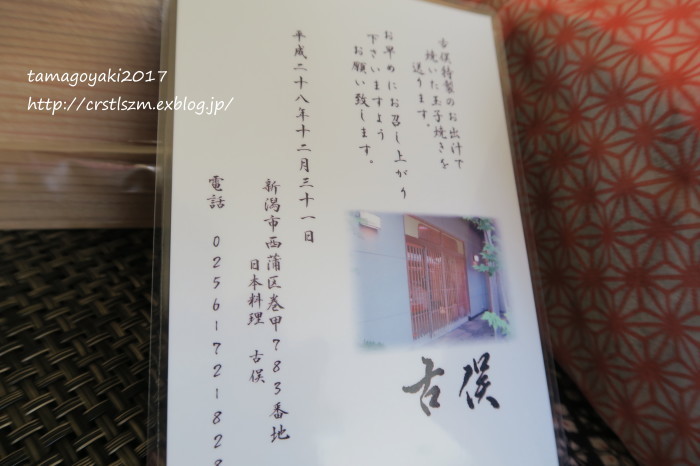 tamagoyaki2017
http://crstlszm.exblog.jp/
古俣特製のお出汁で
焼いた玉子焼きを
送ります。
お早めにお召し上がり
下さいますよう
お願い致します。
平成二十八年十二月三十一日
新潟市西蒲区巻甲783番地
日本料理 古俣
電話 0256172182
古俣